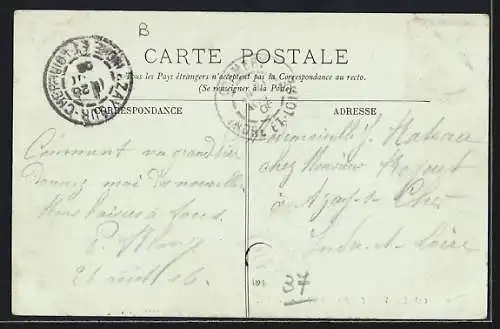 B
CARTE POSTALE
Tous les Pays étrangers n'acceptent pas la Correspondance au recto.
(Se renseigner à la Poste)
CORRESPONDANCE
ADRESSE
Comment va grand'mère
Donnez moi des nouvelles
Mons baisers à tous
P.
21 août 06.
Mademoiselle J.
chez Monsieur
à Azay s Cher
Indre et Loire
37
INDRE-ET-LOIRE